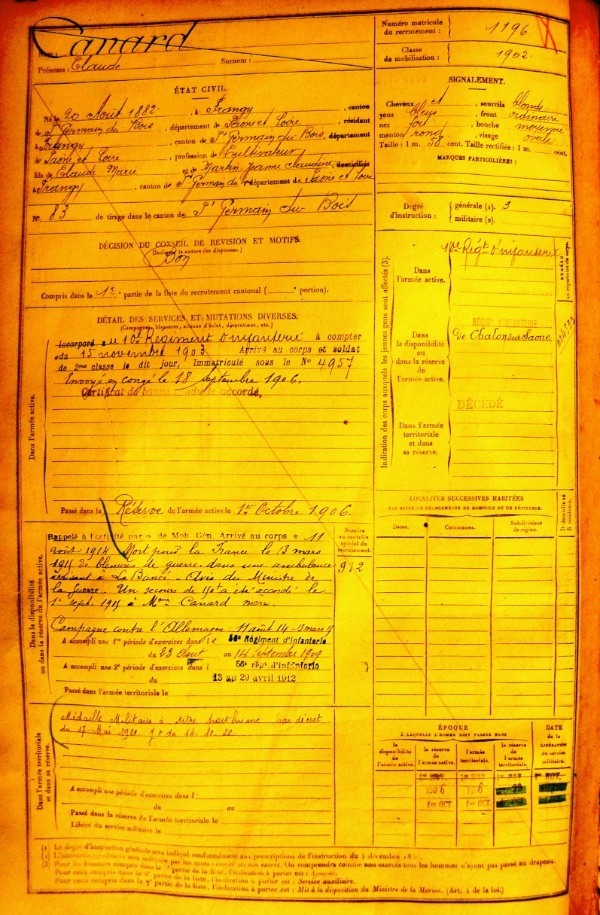 Canard
Prénoms : Claude Surnom :
Numéro matricule du recrutement : 1196
Classe de mobilisation : 1902
ÉTAT CIVIL.
Né le 20 Août 1882, à Frangy, canton
de St Germain du Bois, département de Saône et Loire, résidant
à Frangy, canton de St Germain du Bois, département
de Saône et Loire, profession de Cultivateur
fils de Claude Marie et de Martin Jeanne Claudine, domiciliés
à Frangy, canton de St Germain du département de Saône et Loire
N° 83 de tirage dans le canton de St Germain du Bois
SIGNALEMENT.
Cheveux et sourcils blonds
yeux bleus, front ordinaire
nez fort, bouche moyenne
menton rond, visage ovale
Taille : 1 m. cent. Taille rectifiée : 1 m. cent.
MARQUES PARTICULIÈRES :
Degré d'instruction : générale (2). 3
militaire (2).
DÉCISION DU CONSEIL DE REVISION ET MOTIFS.
Bon
Compris dans la 1re partie de la liste du recrutement cantonal ( portion).
DÉTAIL DES SERVICES ET MUTATIONS DIVERSES.
(Campagnes, blessures, actions d'éclat, décorations, etc.)
Incorporé au 10e Régiment d'infanterie à compter
du 15 novembre 1903. Arrivé au corps et soldat
de 2me classe le dit jour, Immatriculé sous le N° 4957
Envoyé en congé le 18 septembre 1906.
Certificat de bonne conduite accordé.
Dans l'armée active.
Passé dans la Réserve de l'armée active le 1er Octobre 1906.
Indication des corps auxquels les jeunes gens sont affectés (3).
Dans l'armée active.
10e Régt d'infanterie
Dans la disponibilité ou dans la réserve de l'armée active.
de Chalon sur Saône
Dans l'armée territoriale et dans sa réserve.
DÉCÉDÉ
LOCALITÉS SUCCESSIVES HABITÉES
PAR SUITE DE CHANGEMENT DE DOMICILE OU DE RÉSIDENCE.
Dates. Communes. Subdivisions de région.
Numéro au contrôle spécial du recrutement.
912
Dans la disponibilité ou dans la réserve de l'armée active.
Rappelé à l'activité par o. de Mob. Gén. Arrivé au corps le 11
août 1914. Mort pour la France le 13 mars
1915 de blessures de guerre dans une ambulance
Avis du Ministre de
la Guerre. Un secours de 150f a été accordé le
1er sept. 1915 à Mme Canard mère.
Campagne contre l'Allemagne 11 août 14 - 13 mars 15
A accompli une 1re période d'exercices dans le 56e Régiment d'Infanterie
du 23 Août au 14 Septembre 1909
A accompli une 2e période d'exercices dans le 56e régt d'infanterie
du 13 au 29 avril 1912
Passé dans l'armée territoriale le
Dans l'armée territoriale et dans sa réserve.
Médaille Militaire à titre posthume par décret
du 17 Mai 1920
A accompli une période d'exercices dans l
du au
Passé dans la réserve de l'armée territoriale le
Libéré du service militaire le
ÉPOQUE
À LAQUELLE L'HOMME DOIT PASSER DANS
DATE de la LIBÉRATION du service militaire.
la disponibilité de l'armée active.
la réserve de l'armée active.
l'armée territoriale.
la réserve de l'armée territoriale.
1er OCT
(1) Le degré d'instruction générale sera indiqué conformément aux prescriptions de l'instruction du 4 décembre
Pour ceux compris dans la de la liste, l'indication à porter est : Service auxiliaire.
Pour ceux compris dans la 7e partie de la liste, l'indication à porter est : Mis à la disposition du Ministre de la Marine. (Art. 4 de la loi.)